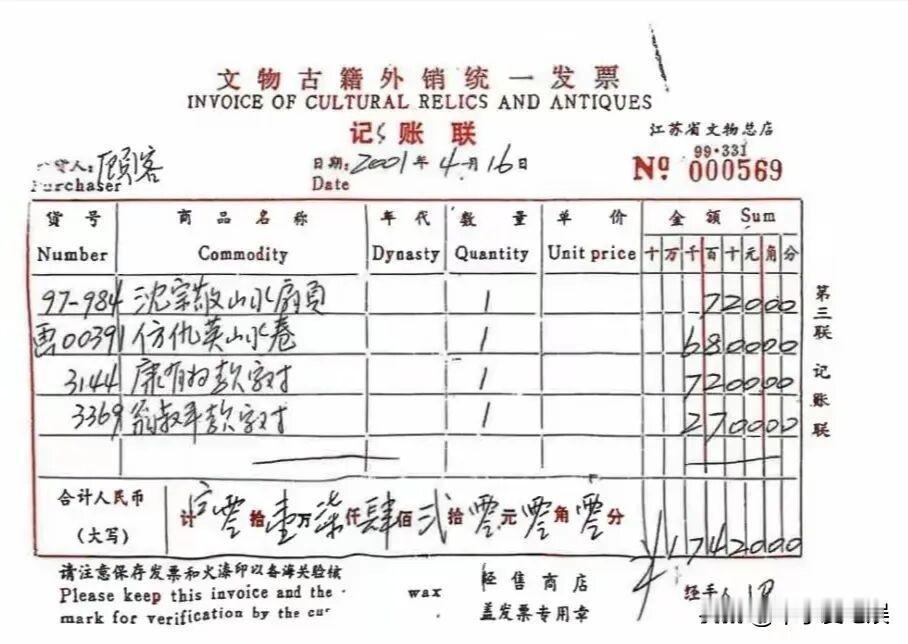 文物古籍外销统一发票
INVOICE OF CULTURAL RELICS AND ANTIQUES
记账联
江苏省文物总店
人: 顾客 日期: 2001年4月16日 99·331
Purchaser Date № 000569
货号 商品名称 年代 数量 单价 金额 Sum
Number Commodity Dynasty Quantity Unit price 十万千百十元角分
97-984 沈宗敬山水扇页 1 72000
画00391 仿仇英山水卷 1 680000
3144 康有为款字对 1 720000
3369 翁叔平款字对 1 270000
合计人民币 计 零拾壹万柒仟肆佰贰拾零元零角零分
(大写) ¥1742000
请注意保存发票和火漆印以备海关验核
Please keep this invoice and the wax 经售商店
mark for verification by the 盖发票专用章 经手人
第三联 记账联